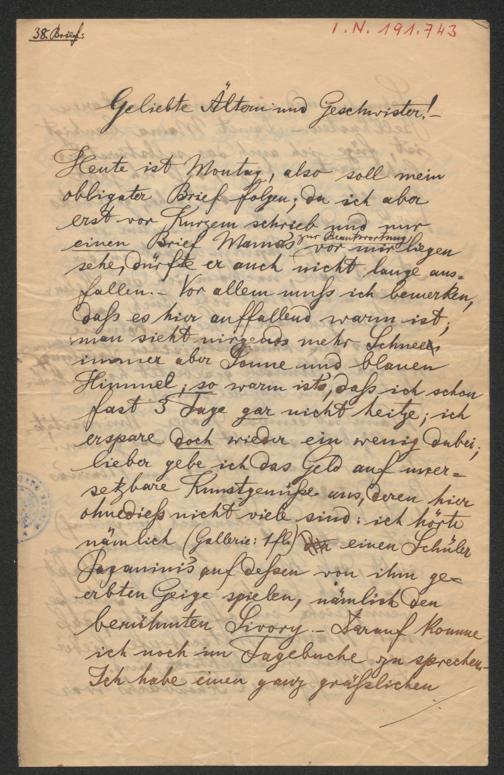 38. Brief:
I. N. 191.743
Geliebte Ältern und Geschwister!–
Heute ist Montag, also soll mein
obligater Brief folgen; da ich aber
erst vor Kurzem schrieb und nur
einen Brief Mama's zur Beantwortung vor mir liegen
sehe, dürfte er auch nicht lange aus=
fallen.– Vor allem muss ich bemerken,
daß es hier auffallend warm ist;
man sieht nirgends mehr Schnee,
immer aber Sonne und blauen
Himmel; so warm ist's, daß ich schon
fast 3 Tage gar nicht heitze; ich
erspare doch wieder ein wenig dabei;
lieber gebe ich das Geld auf uner=
setzbare Kunstgenüße aus, deren hier
ohnedieß nicht viele sind: ich hörte
nämlich (Gallerie: 1 fl.) einen Schüler
Paganini's auf dessen von ihm ge=
erbten Geige spielen, nämlich den
berühmten Sivory.– Darauf komme
ich noch im Tagebuche zu sprechen.–
Ich habe einen ganz gräßlichen